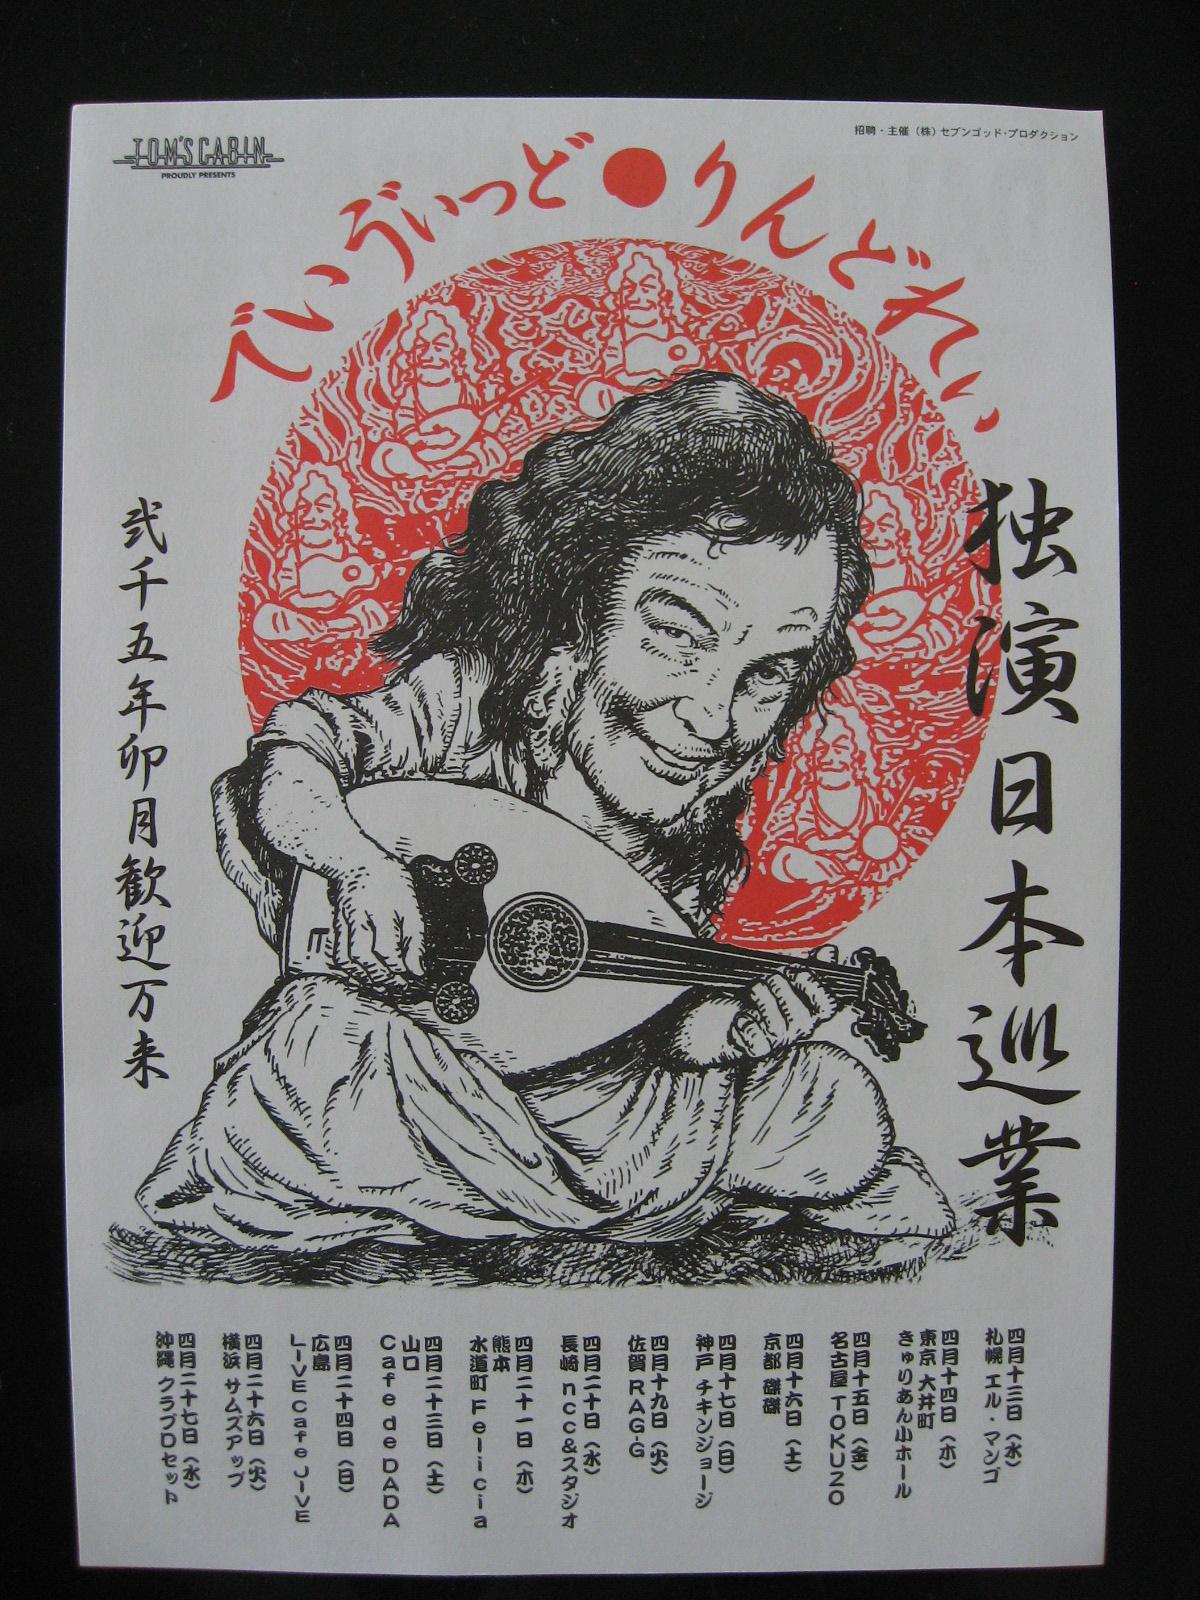 TOM'S CABIN
PROUDLY PRESENTS
招聘・主催（株）セブンゴッド・プロダクション
べいゔぃっど●りんどれい
独演日本巡業
弐千五年卯月歓迎万来
四月十三日（水）
札幌 エル・マンゴ
四月十四日（木）
東京 大井町
きゅりあん小ホール
四月十五日（金）
名古屋 TOKUZO
四月十六日（土）
京都 磔磔
四月十七日（日）
神戸 チキンジョージ
四月十九日（火）
佐賀 RAG-G
四月二十日（水）
長崎 ncc&スタジオ
四月二十一日（木）
熊本
水道町 Felicia
四月二十三日（土）
山口
Cafe de DADA
四月二十四日（日）
広島
LIVE Cafe JIVE
四月二十六日（火）
横浜 サムズアップ
四月二十七日（水）
沖縄 クラブDセット